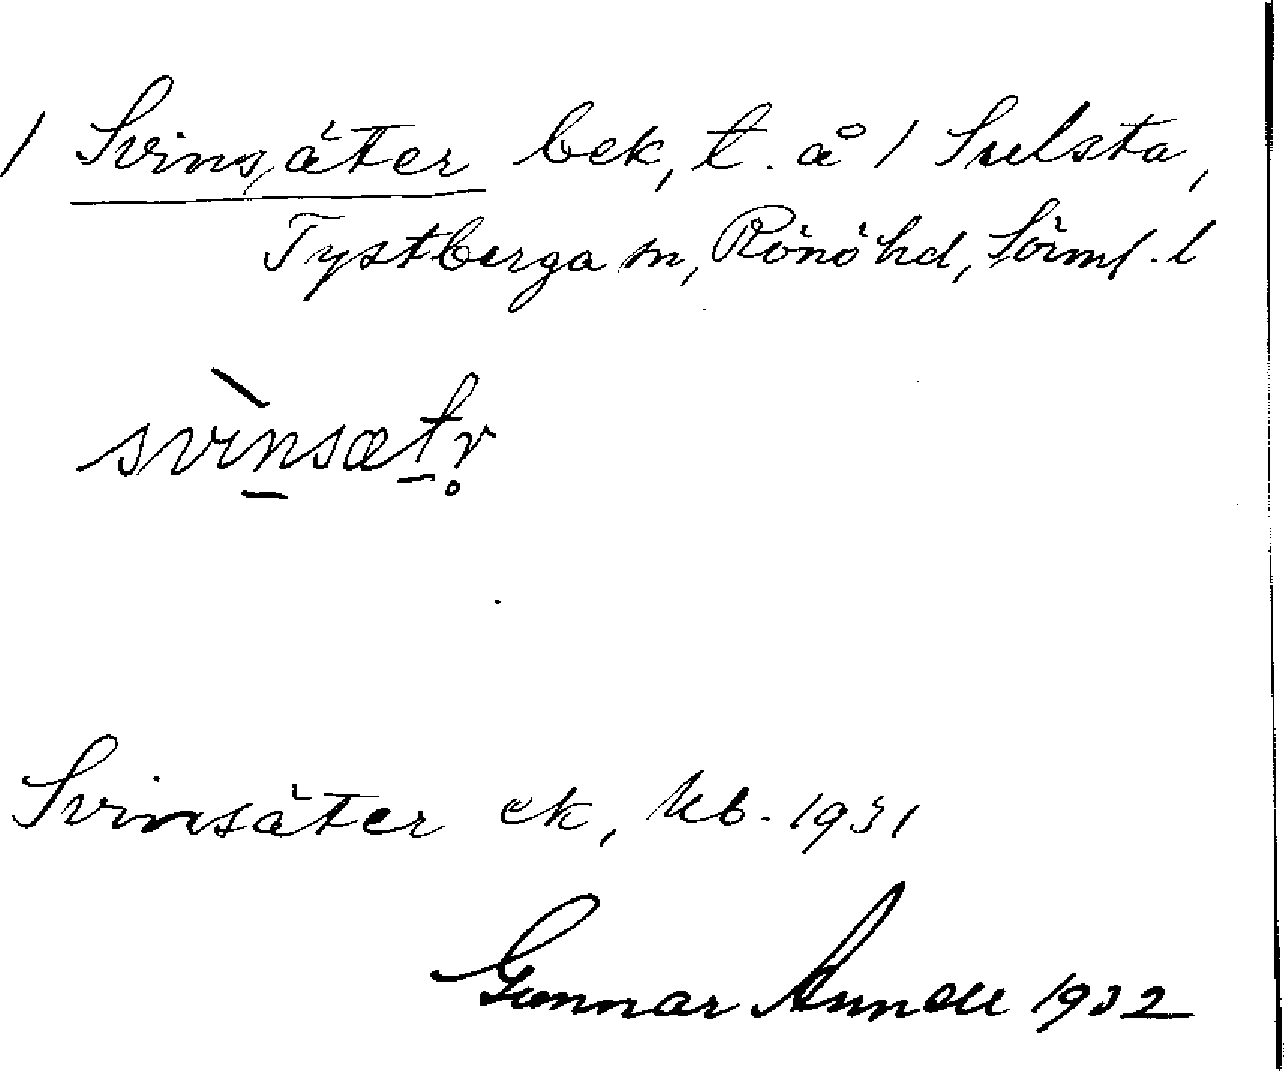 / Svinsäter bek, t. å / Sulsta,
Tystberga sn, Rönö hd, Sörml. l
svìnsætr̥
Svinsäter ek, kb. 1931
Gunnar 1932